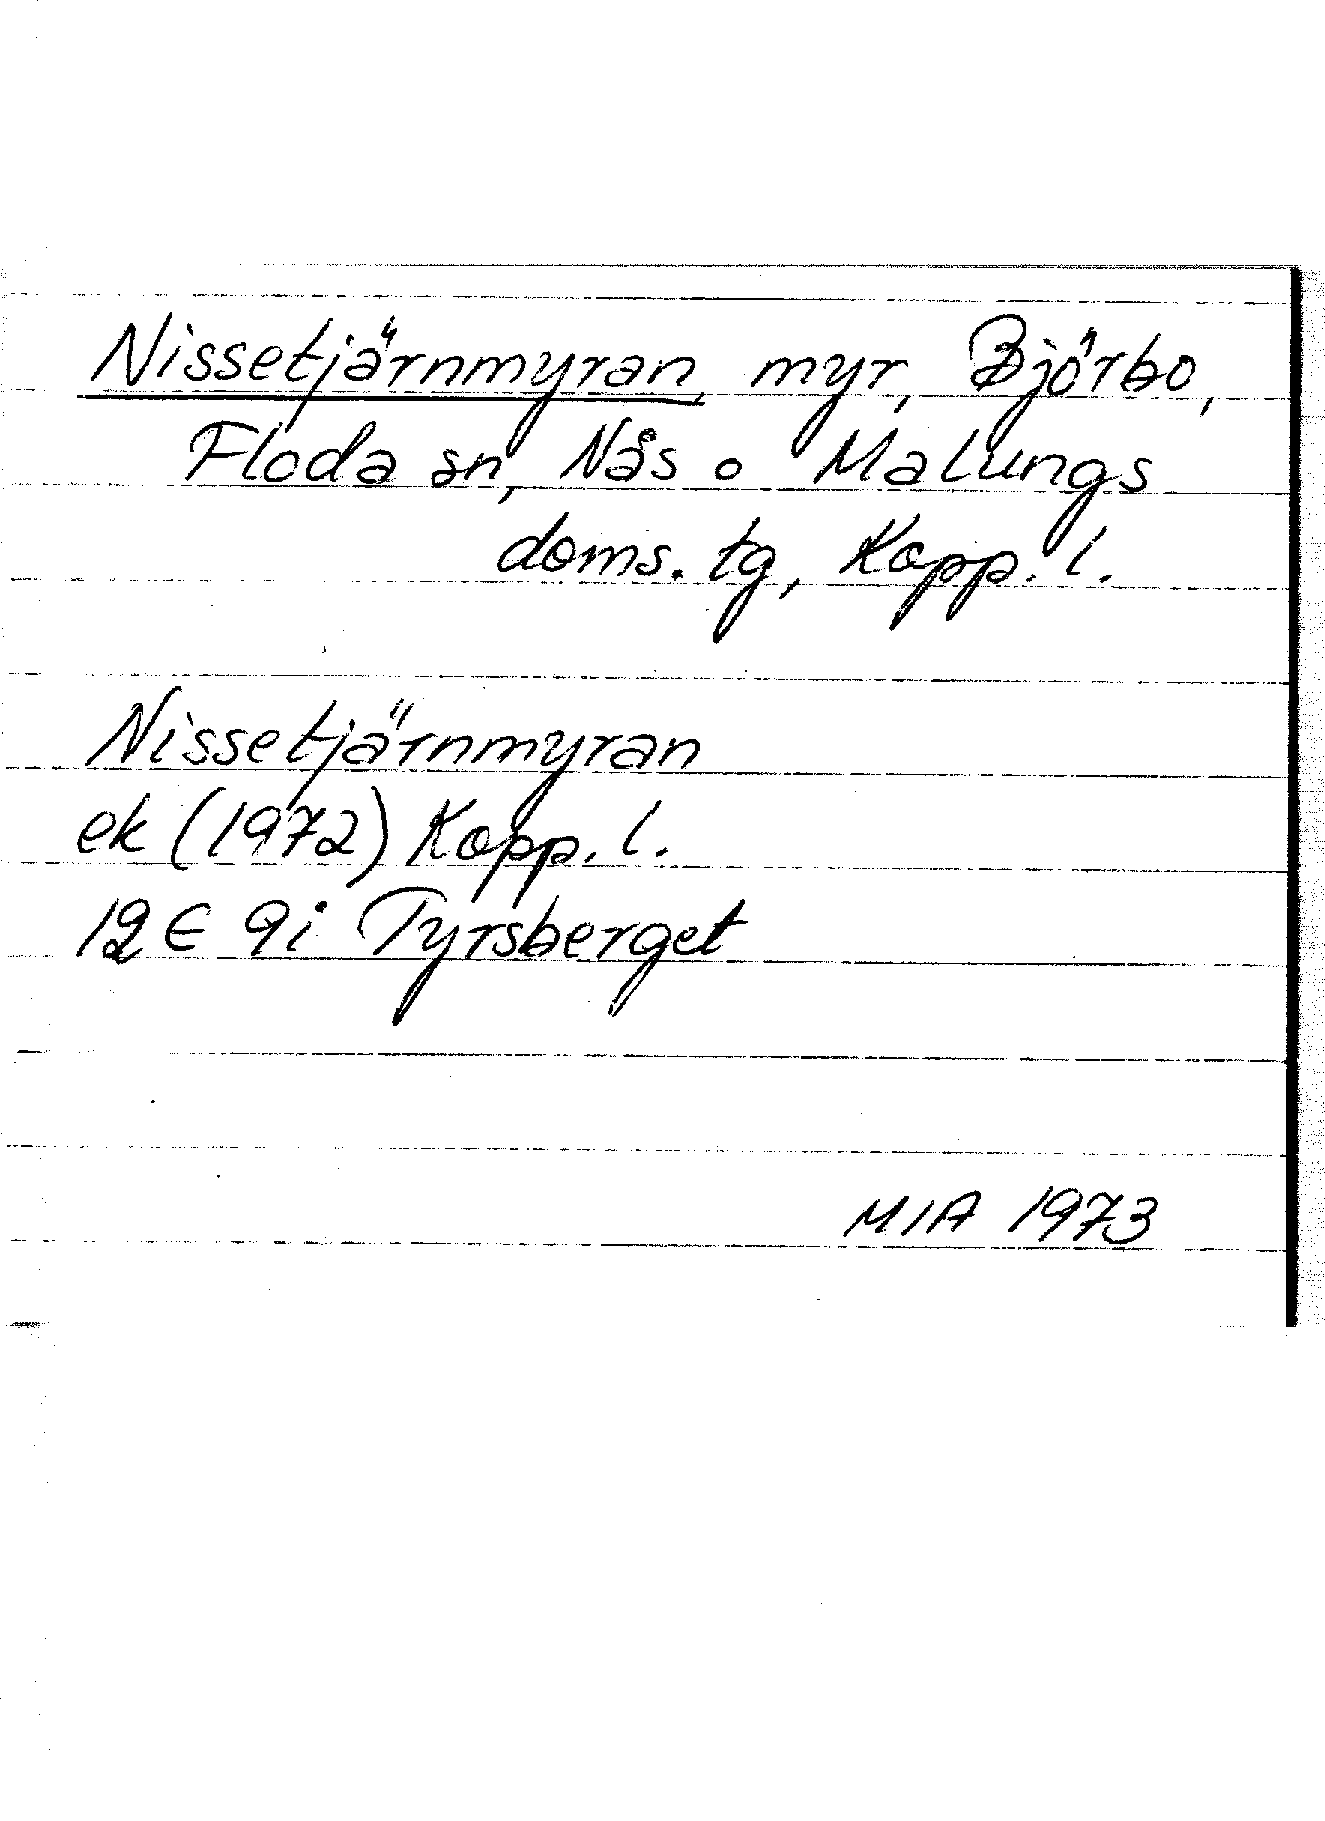 Nissetjärnmyran, myr, Björbo,
Floda sn, Nås o Malungs
doms. tg, Kopp. l.
Nissetjärnmyran
ek (1972) Kopp. l.
12 E 9i Tyrsberget
MIA 1973